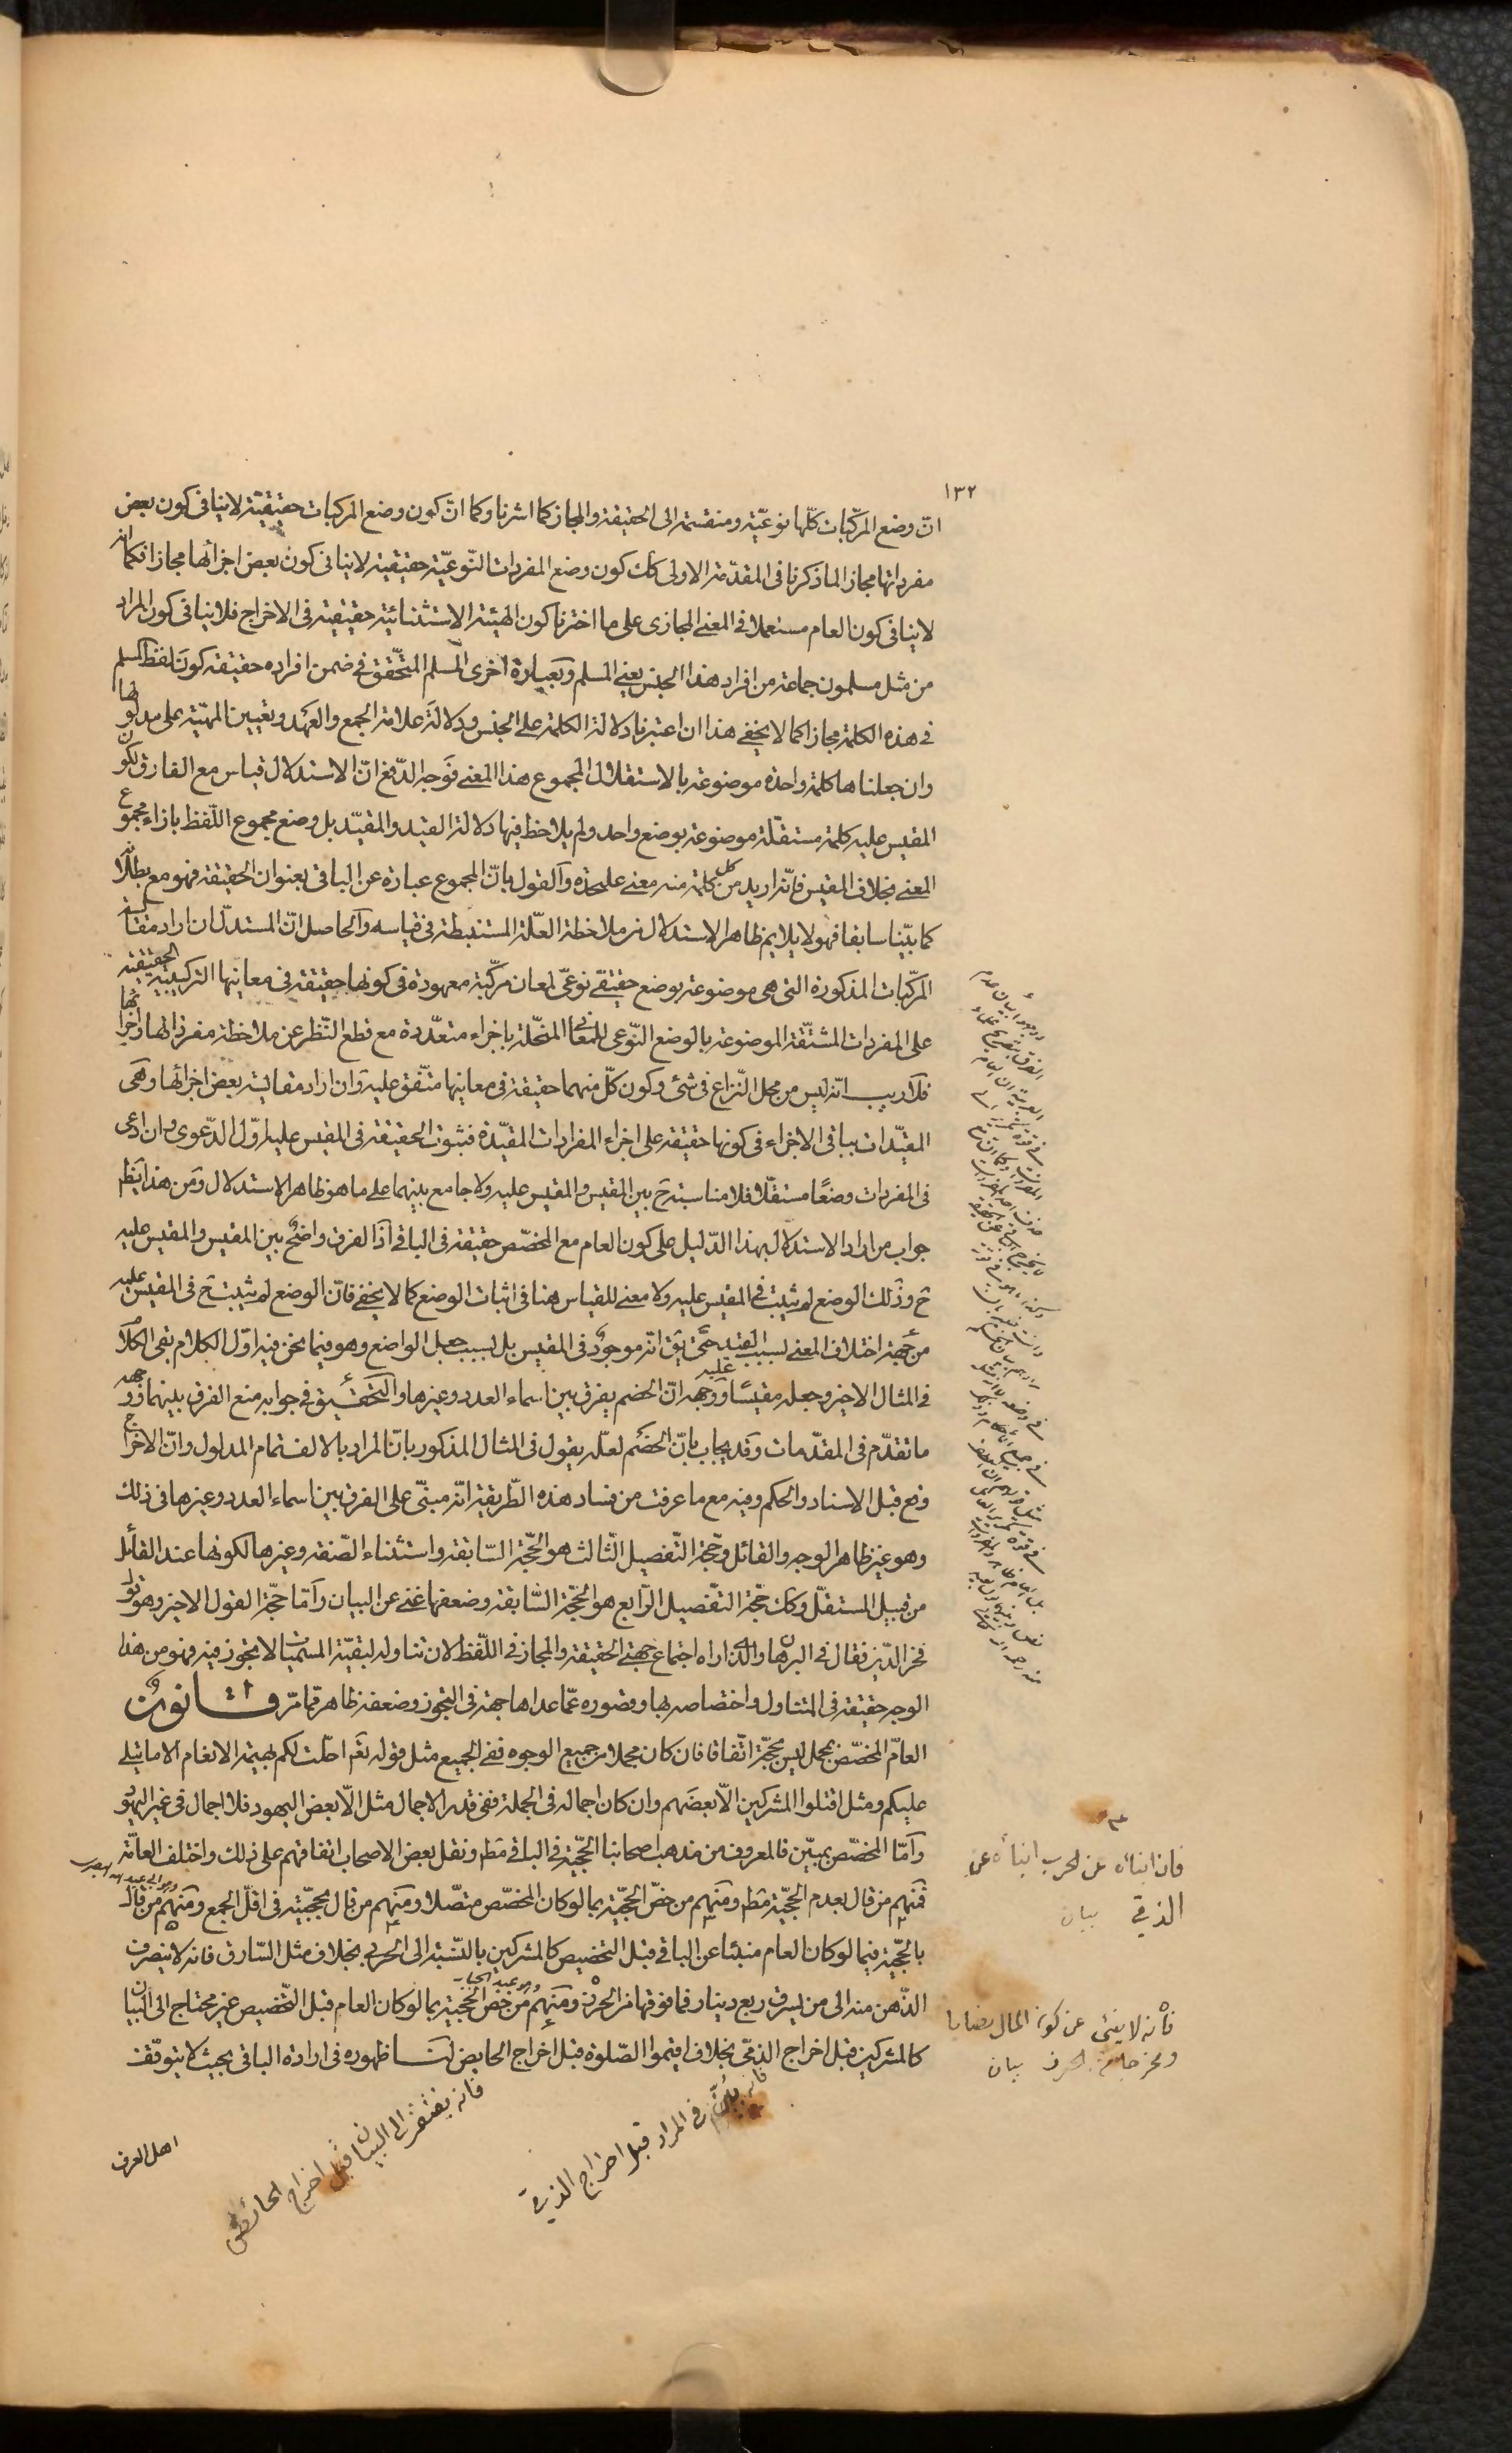 ١٣٢
انّ وضع المركّبات كلّها نوعيّة ومنقسمة الى الحقيقة والمجاز كما اشرنا وكما انّ كون وضع المركبات حقيقيّة لا ينافى كون بعض
مفرداتها مجازا لما ذكرنا فى المقدّمة الاولى كك كون وضع المفردات النّوعيّة حقيقية لا ينافى كون بعض اجزائها مجازا فكما انّه
لا ينافى كون العام مستعملا فى المعنى المجازى على ما اخترنا كون الهيئة الاستثنائية حقيقية فى الاخراج فلا ينافى كون المراد
من مثل مسلمون جماعة من افراد هذا الجنس يعنى المسلم وبعبارة اخرى المسلم المتحقّق فى ضمن افراده حقيقة كون لفظ المسلم
فى هذه الكلمة مجازا كما لا يخفى هذا ان اعتبرنا دلالة الكلمة على الجنس ودلالة علامة الجمع والعهد وتعيين المهيّة على مدلولها
وان جعلناها كلمة واحدة موضوعة بالاستقلال لمجموع هذا المعنى فوجه الدّفع انّ الاستدلال قياس مع الفارق لكون
المقيس عليه كلمة مستقلّة موضوعة بوضع واحد ولم يلاحظ فيها دلالة القيد والمقيّد بل وضع مجموع اللّفظ بازاء مجموع
المعنى بخلاف المقيس فانّه اريد من كل كلمة منه معنى عليحده والقول بانّ المجموع عبارة عن الباقى بعنوان الحقيقة فهو مع بطلانه
كما بيّنا سابقا فهو لا يلايم ظاهر الاستدلال من ملاحظة العلّة المستنبطة فى قياسه والحاصل انّ المستدلّ ان اراد مقايسة
المركّبات المذكورة التى هى موضوعة بوضع حقيقى نوعىّ لمعان مركّبة معهودة فى كونها حقيقة فى معانيها التركيبية الحقيقية
على المفردات المشتقّة الموضوعة بالوضع النّوعى للمعانى المنحلّة باجزاء متعدّدة مع قطع النّظر عن ملاحظة مفرداتها واجزائها
فلا ريب انّه ليس من محل النّزاع فى شئ وكون كلّ منهما حقيقة فى معانيها متّفق عليه وان اراد مقايسة بعض اجزائها وهى
المقيّدات بباقى الاجزاء فى كونها حقيقة على اجزاء المفردات المقيّدة فثبوت الحقيقة فى المقيس عليه اوّل الدّعوى وان ادعى
فى المفردات وضعًا مستقلّا فلا مناسبة ح بين المقيس والمقيس عليه ولا جامع بينهما على ما هو ظاهر الاستدلال ومن هذا يظهر
جواب من اراد الاستدلال بهذا الدّليل على كون العام مع المخصّص حقيقة فى الباقى اذ الفرق واضح بين المقيس والمقيس عليه
ح وذلك الوضع لم يثبت فى المقيس عليه ولا معنى للقياس هنا فى اثبات الوضع كما لا يخفى فانّ الوضع لم يثبت ح فى المقيس عليه
من جهة اختلاف المعنى بسبب القيد حتى يق انّه موجود فى المقيس بل بسبب جعل الواضع وهو فيما نحن فيه اوّل الكلام بقى الكلام
فى المثال الاخير وجعله مقيسًا عليه ووجهه انّ الخصم يفرق بين اسماء العدد وغيرها والتحقيق فى جوابه منع الفرق بينهما ووجهه
ما تقدّم فى المقدّمات وقد يجاب بانّ الخصم لعلّه يقول فى المثال المذكور بانّ المراد بالالف تمام المدلول وانّ الاخراج
وقع قبل الاسناد والحكم وفيه مع ما عرفت من فساد هذه الطّريقة انّه مبنىّ على الفرق بين اسماء العدد وغيرها فى ذلك
وهو غير ظاهر الوجه والقائل وحجّة التّفصيل الثّالث هو الحجّة السّابقة واستثناء الصّفة وغيرها لكونها عند القائل
من قبيل المستقلّ وكك حجّة التّفصيل الرّابع هو الحجّة السّابقة وضعفها غنى عن البيان وامّا حجّة القول الاخير وهو قول
فخر الدّين فقال فى البرهان والذى اراه اجتماع جهتى الحقيقة والمجاز فى اللّفظ لان تناوله لبقيّة المسمّيات لا تجوز فيه فهو من هذا
الوجه حقيقة فى المتناول واختصاصه بها وقصوره عمّا عداها جهة فى التجوز وضعفه ظاهر ممّا مرّ قانون
العامّ المخصّص بمجمل ليس بحجّة اتّفاقا فان كان مجملا من جميع الوجوه ففى الجميع مثل قوله تع احلّت لكم بهيمة الانعام الا ما يتلى
عليكم ومثل اقتلوا المشركين الّا بعضهم وان كان اجماله فى الجملة ففى قدر الاجمال مثل الّا بعض اليهود فلا اجمال فى غير اليهود
وامّا المخصّص بمبيّن فالمعروف من مذهب اصحابنا الحجيّة فى الباقى مطم ونقل بعض الاصحاب اتفاقهم على ذلك واختلف العامّة
فمنهم من قال بعدم الحجيّة مطم ومنهم من خصّ الحجيّة بما لو كان المخصّص متّصلا ومنهم من قال بحجيّته فى اقلّ الجمع ومنهم من قال
بالحجّية فيما لو كان العام منبئا عن الباقى قبل التخصيص كالمشركين بالنّسبة الى الحربى بخلاف مثل السّارق فانه لا ينصرف
الذّهن منه الى من يسرق ربع دينار فما فوقها من الحرز ومنهم من خصّ الحجّية بما لو كان العام قبل التّخصيص غير محتاج الى البيان
كالمشركين قبل اخراج الذمّى بخلاف اقيموا الصّلوة قبل اخراج الحايض لنا ظهوره فى ارادة الباقى بحيث لا يتوقف
اهل العرف
فان انبائه عن الحرب انبائه عن
الذمي بيان
فانه لا ينبئ عن كون المال نصابا
ومخرجا من الحرز بيان
وهو عبد الجبار
فانه بيّن فى المراد قبل اخراج الذمى
فانه يفتقر الى البيان قبل اخراج الحائض